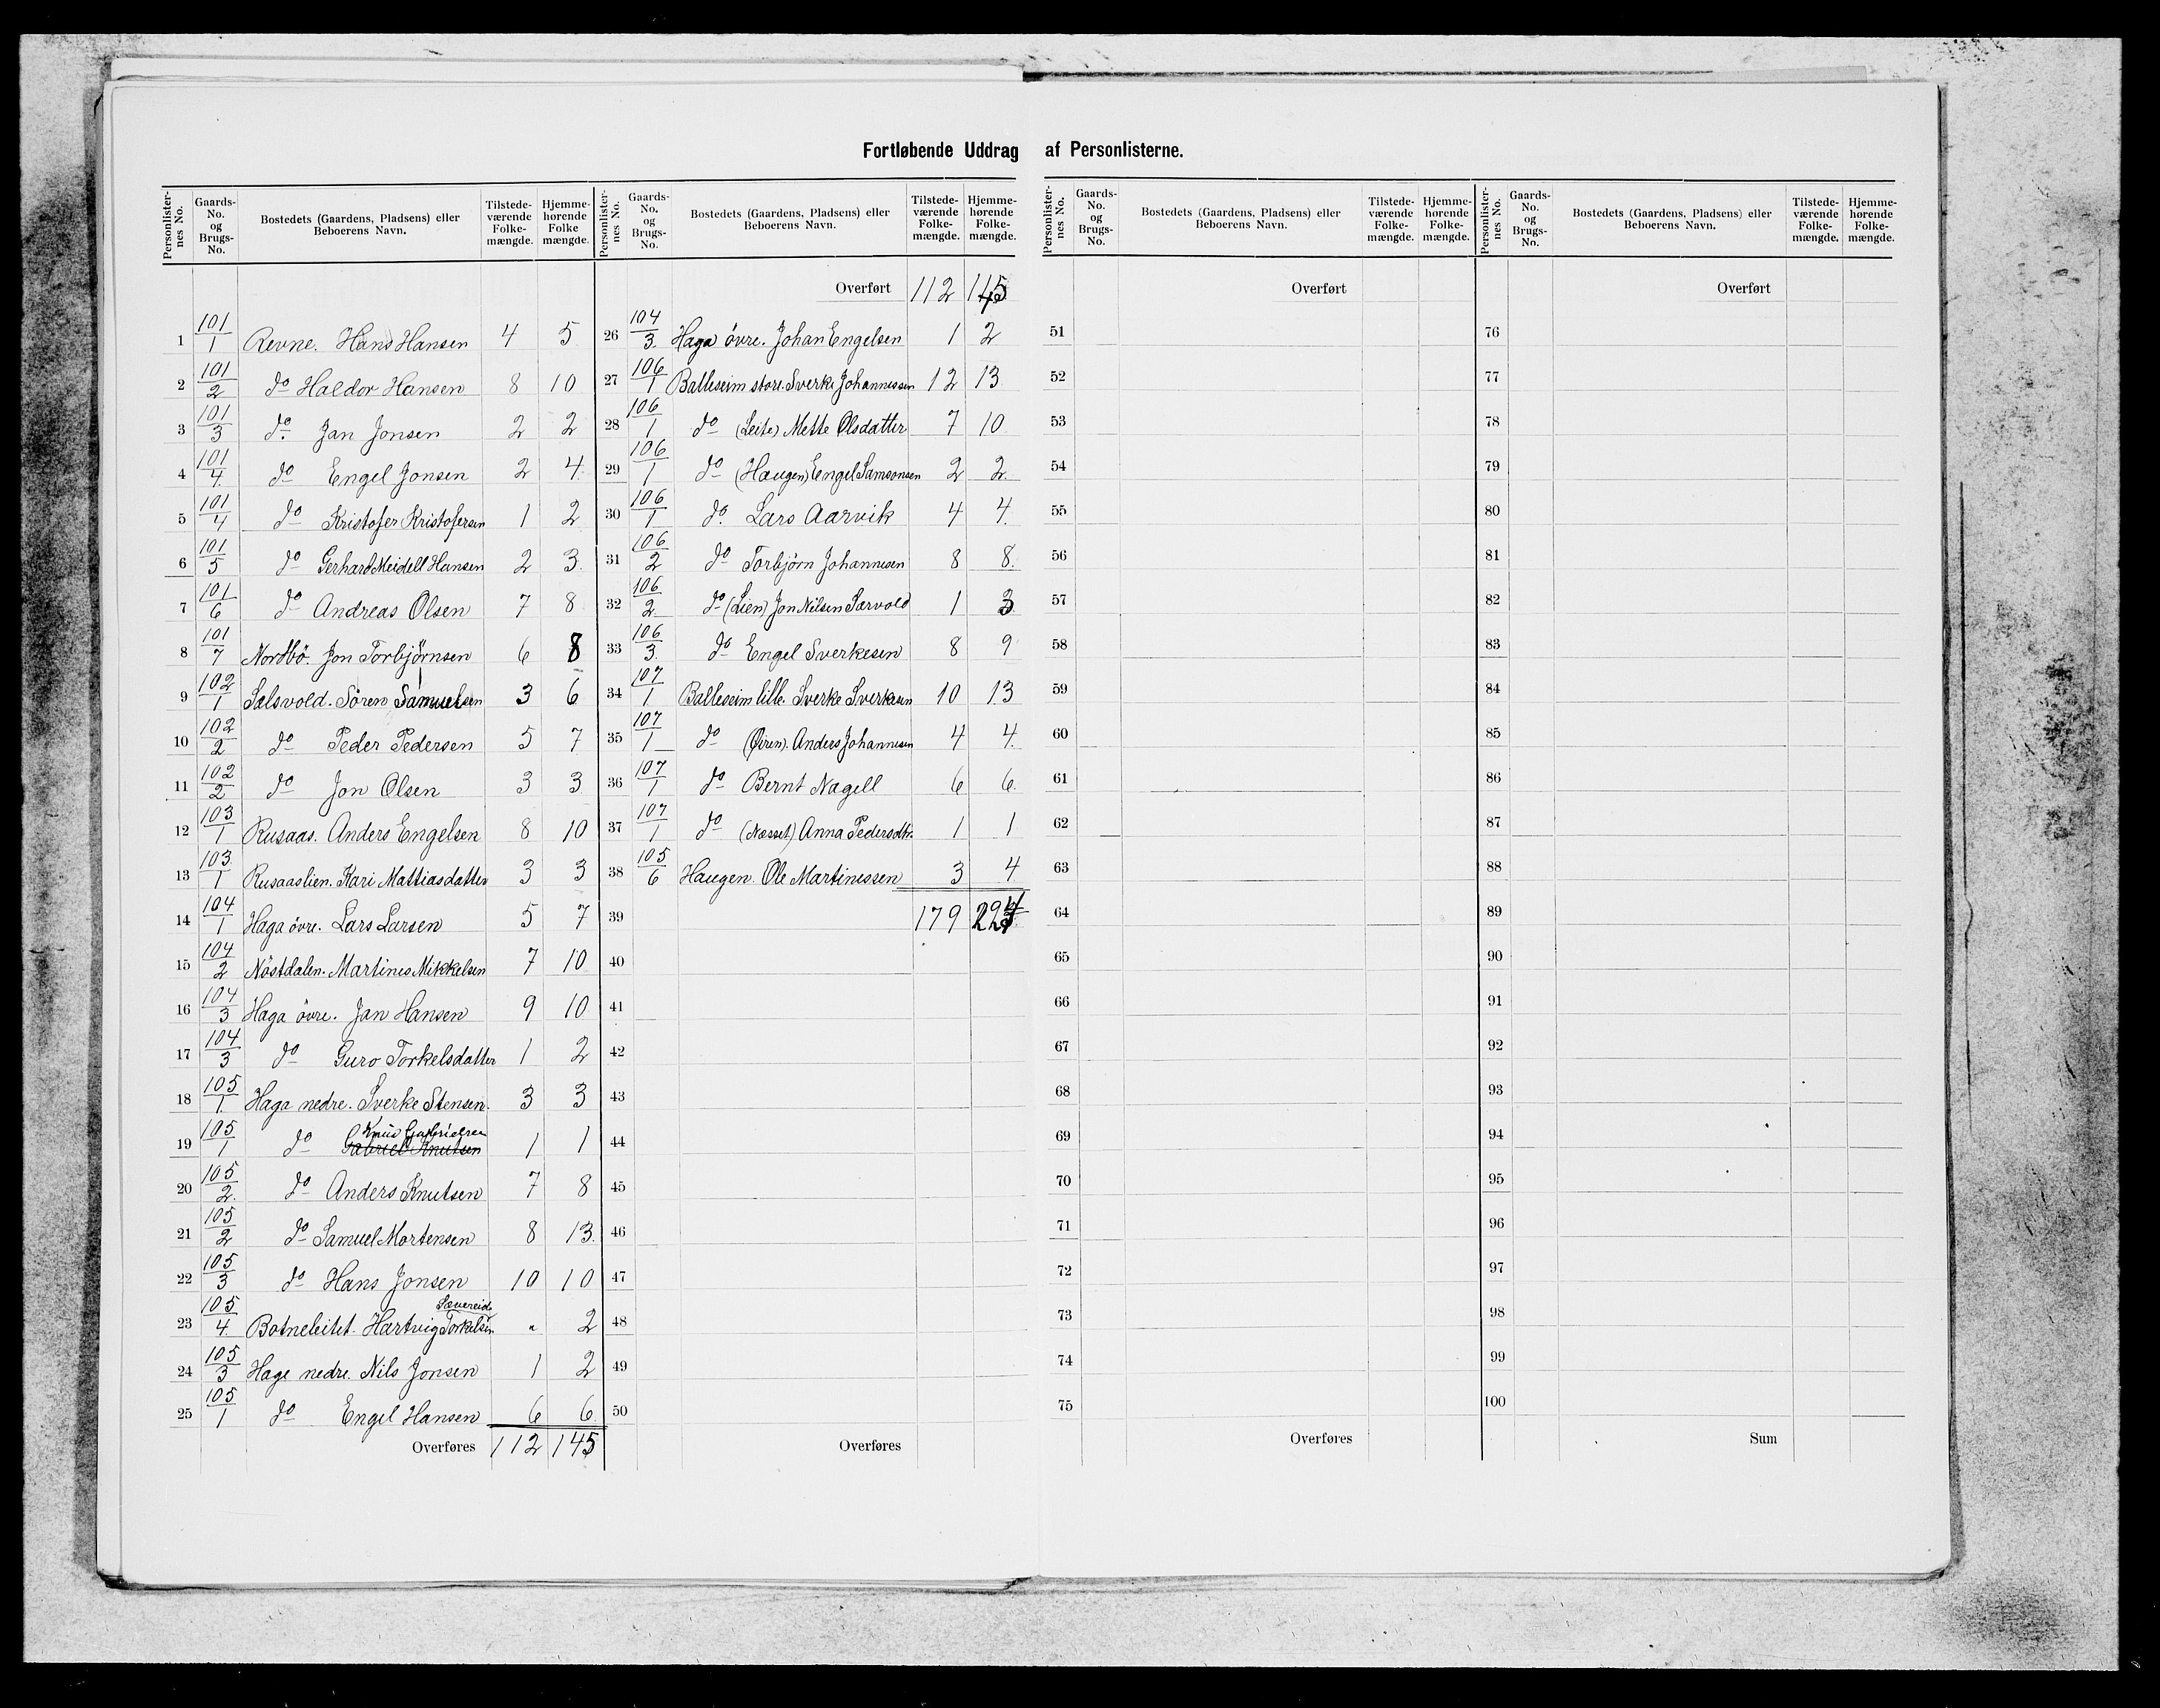 Fortløbende Uddrag af Personlisterne.
Personlister-nes No. | Gaards-No. og Brugs-No. | Bostedets (Gaardens, Pladsens) eller Beboerens Navn. | Tilstede-værende Folke-mængde. | Hjemme-hørende Folke mængde.
1 101/1 Revne. Hans Hansen 4 5
2 101/2 do Haldor Hansen 8 10
3 101/3 do. Jan Jonsen 2 2
4 101/4 do Engel Jonsen 2 4
5 101/4 do Kristofer Kristofersen 1 2
6 101/5 do Gerhard Meidell Hansen 2 3.
7 101/6 do Andreas Olsen 7 8
8 101/7 Nordbö. Jon Torbjörnsen 6 8
9 102/1 Sælsvold. Sören Samuelsen 3 6
10 102/2 do Peder Pedersen 5 7
11 102/2 do Jon Olsen 3 3
12 103/1 Rusaas. Anders Engelsen 8 10
13 103/1 Rusaaslien. Kari Mattiasdatter 3 3
14 104/1 Haga övre. Lars Larsen 5 7
15 104/2 Nöstdalen. Martines Mikkelsen 7 10
16 104/3 Haga övre. Jan Hansen 9 10
17 104/3 do Guro Torkelsdatter 1 2
18 105/1 Haga nedre. Sverke Stensen. 3 3
19 105/1 do Knud Gabrielsen
Gabriel Knutsen 1 1
20 105/2 do Anders Knutsen 7 8
21 105/2 do Samuel Mortensen 8 13.
22 105/3 do Hans Jonsen 10 10
Sævereide
23 105/4 Botneleitet. Hartvig Torkelsen " 2
24 105/3 Hage nedre. Nils Jonsen 1 2
25 105/1 do Engel Hansen 6 6.
Overføres 112 145
Personlister-nes No. | Gaards-No. og Brugs-No. | Bostedets (Gaardens, Pladsens) eller Beboerens Navn. | Tilstede-værende Folke-mængde. | Hjemme-hørende Folke-mængde.
Overført 112 145
26 104/3. Haga övre. Johan Engelsen 1 2
27 106/1 Balleseim store. Sverke Johannessen 12 13
28 106/1 do (Leite) Mette Olsdatter 7 10
29 106/1 do (Haugen) Engel Samsonsen 2 2
30 106/1 do. Lars Aarvik 4 4.
31 106/2 do Torbjörn Johannesen 8 8.
32 106/2 do (Lien) Jon Nilsen Sarvold 1 3
33 106/3. do Engel Sverkesen 8 9
34 107/1 Balleseim lille. Sverke Sverkesen 10 13
35 107/1 do (Øiren). Anders Johannesen 4 4.
36 107/1 do Bernt Nagell 6 6.
37 107/1 do (Næsset) Anna Pedersdtr. 1 1
38 105/6 Haugen. Ole Martinessen 3 4.
39 179 224
40
41
42
43
44
45
46
47
48
49
50
Overføres
Personlister-nes No. | Gaards-No. og Brugs-No. | Bostedets (Gaardens, Pladsens) eller Beboerens Navn. | Tilstede-værende Folke-mængde. | Hjemme-hørende Folke-mængde.
Overført
51
52
53
54
55
56
57
58
59
60
61
62
63
64
65
66
67
68
69
70
71
72
73
74
75
Overføres
Personlister-nes No. | Gaards-No. og Brugs-No. | Bostedets (Gaardens, Pladsens) eller Beboerens Navn. | Tilstede-værende Folke-mængde. | Hjemme-hørende Folke-mængde.
Overført
76
77
78
79
80
81
82
83
84
85
86
87
88
89
90
91
92
93
94
95
96
97
98
99
100
Sum